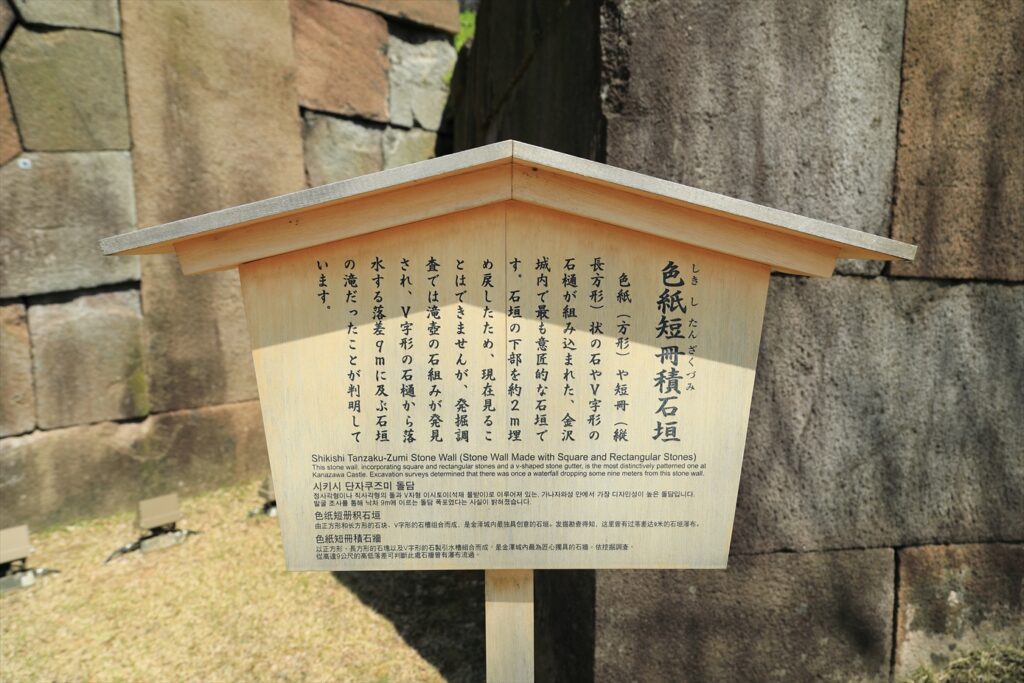 しきしたんざくづみ
色紙短冊積石垣
色紙（方形）や短冊（縦
長方形）状の石やＶ字形の
石樋が組み込まれた、金沢
城内で最も意匠的な石垣で
す。石垣の下部を約２ｍ埋
め戻したため、現在見るこ
とはできませんが、発掘調
査では滝壺の石組みが発見
され、Ｖ字形の石樋から落
水する落差９ｍに及ぶ石垣
の滝だったことが判明して
います。
Shikishi Tanzaku-Zumi Stone Wall (Stone Wall Made with Square and Rectangular Stones)
This stone wall, incorporating square and rectangular stones and a v-shaped stone gutter, is the most distinctively patterned one at
Kanazawa Castle. Excavation surveys determined that there was once a waterfall dropping some nine meters from this stone wall.
시키시 단자쿠즈미 돌담
정사각형이나 직사각형의 돌과 V자형 이시토이(석재 물받이)로 이루어져 있는, 가나자와성 안에서 가장 디자인성이 높은 돌담입니다.
발굴 조사를 통해 낙차 9m에 이르는 돌담 폭포였다는 사실이 밝혀졌습니다.
色纸短册积石垣
由正方形和长方形的石块、V字形的石槽组合而成，是金泽城内最独具创意的石垣。发掘勘查得知，这里曾有过落差达9米的石垣瀑布。
色紙短冊積石牆
以正方形、長方形的石塊以及V字形的石製引水槽組合而成，是金澤城內最為匠心獨具的石牆。依挖掘調查，
從高達9公尺的高低落差可判斷此處石牆曾有瀑布流過。